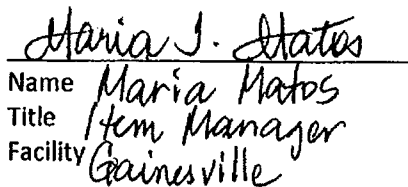 Maria J. Matos
Name Maria Matos
Title Item Manager
Facility Gainesville